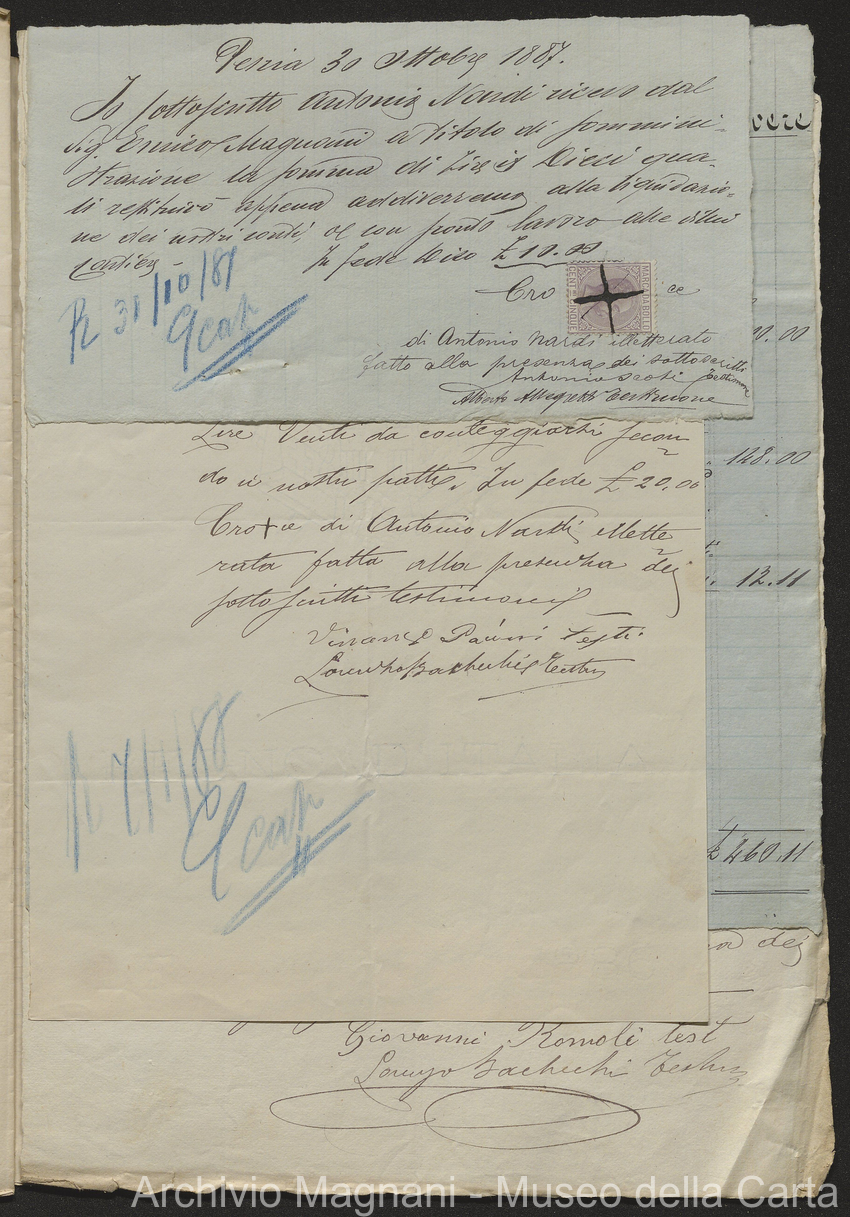 Pescia 30 Ottobre 1887.
Io sottoscritto Antonio Nardi ricevo dal
S.g. Enrico Magnani a titolo di sommini-
strazione la somma di Lire Dieci qua-
li restituirò appena addiverremo alla liquidazio-
ne dei nostri conti, o con tanto lavoro alle
In fede Dico £ 10.00
Cro ce
CENT. CINQUE
MARCA DA BOLLO
di Antonio Nardi illetterato
fatto alla presenza dei sottoscritti
Antonio Testimone
Alberto Allegretti Testimone
30/10/87
vere
0.00
Lire Venti da conteggiarsi secon-
do i nostri patti. In fede £ 20.00
Cro+ce di Antonio Nardi illette-
rata fatta alla presenza dei
sottoscritti testimoni
Pacini Testi.
Lorenzo Bachechi Testim
148.00
12.11
7/1/88
£ 260.11
dei
Giovanni Romoli test
Lorenzo Bachechi Testim
Archivio Magnani - Museo della Carta